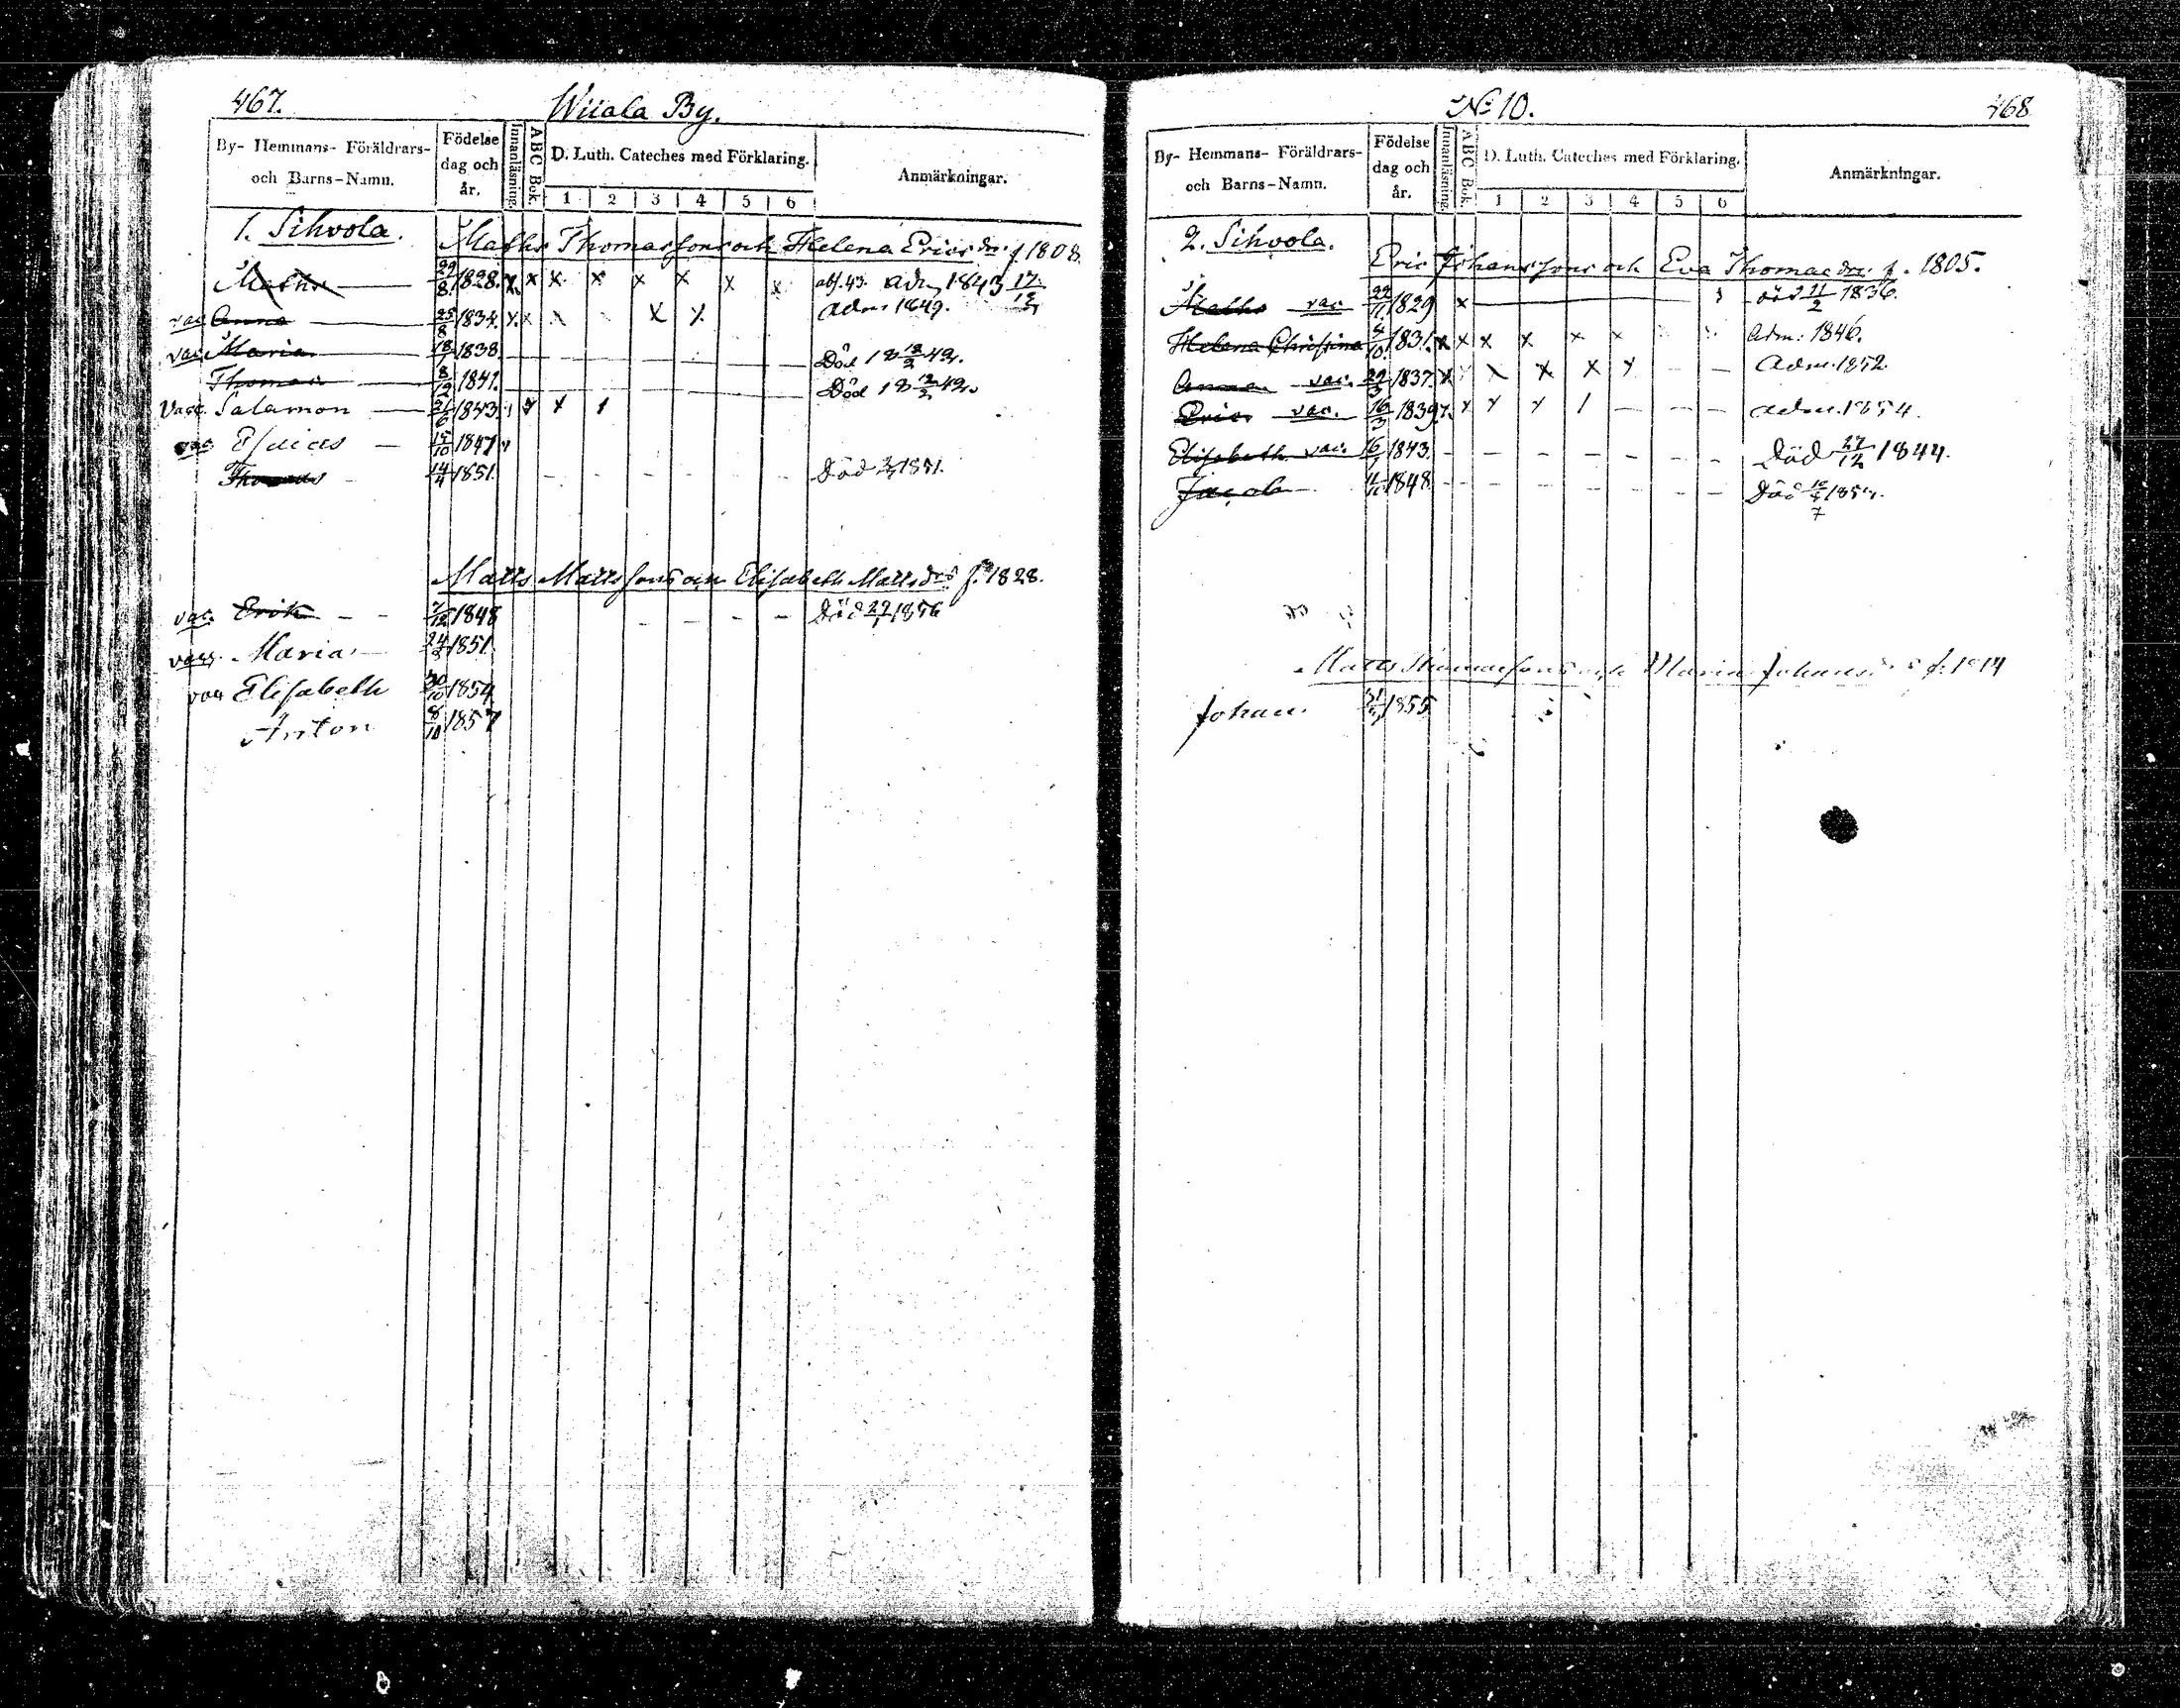 467.
Wiiala By.
By- Hemmans- Föräldrars- och Barns-Namn.
Födelse dag och år.
Innanläsning.
ABC Bok.
D. Luth. Cateches med Förklaring.
1 2 3 4 5 6
Anmärkningar.
1. Sihvola.
Maths Thomasson och Helena Ericsdr. f. 1808.
Maths 29/8 1828. x x x x x x x x abs. 43. adm 1843
vac Anna 25/8 1834. x x x x adm 1849.
vac Maria 18/7 1838 Död 18 12/2 42.
Thomas 8/12 1841. Död 18 12/2 42.
Vacc. Salamon 21/6 1843. x x
vac Esaias 15/10 1847
Thomas 14/4 1851. Död 1851.
Matts Mattsson och Elisabeth Mattsdr f. 1828.
vac. Erik 7/12 1848 Död 1856
vacc. Maria 1851.
vac Elisabeth 30/10 1854
Anton 8/10 1857
No 10.
468
By- Hemmans- Föräldrars- och Barns-Namn.
Födelse dag och år.
Innanläsning.
ABC Bok.
D. Luth. Cateches med Förklaring.
1 2 3 4 5 6
Anmärkningar.
2. Sihvola.
Eric Johansson och Eva Thomasdr. f. 1805.
Maths vac 22/11 1829 x död 11/2 1836.
Helena Christina 4/10 1831. x x x x x x Adm: 1846.
Anna vac. 29/3 1837. x x x x adm. 1852.
Eric vac. 16/3 1839. x x x adm. 1854.
Elisabeth vac. 1843. Död 27/12 1844.
Jacob 1848. Död
Matts Thomasson och Maria Johansdr f. 1814
Johan 1855